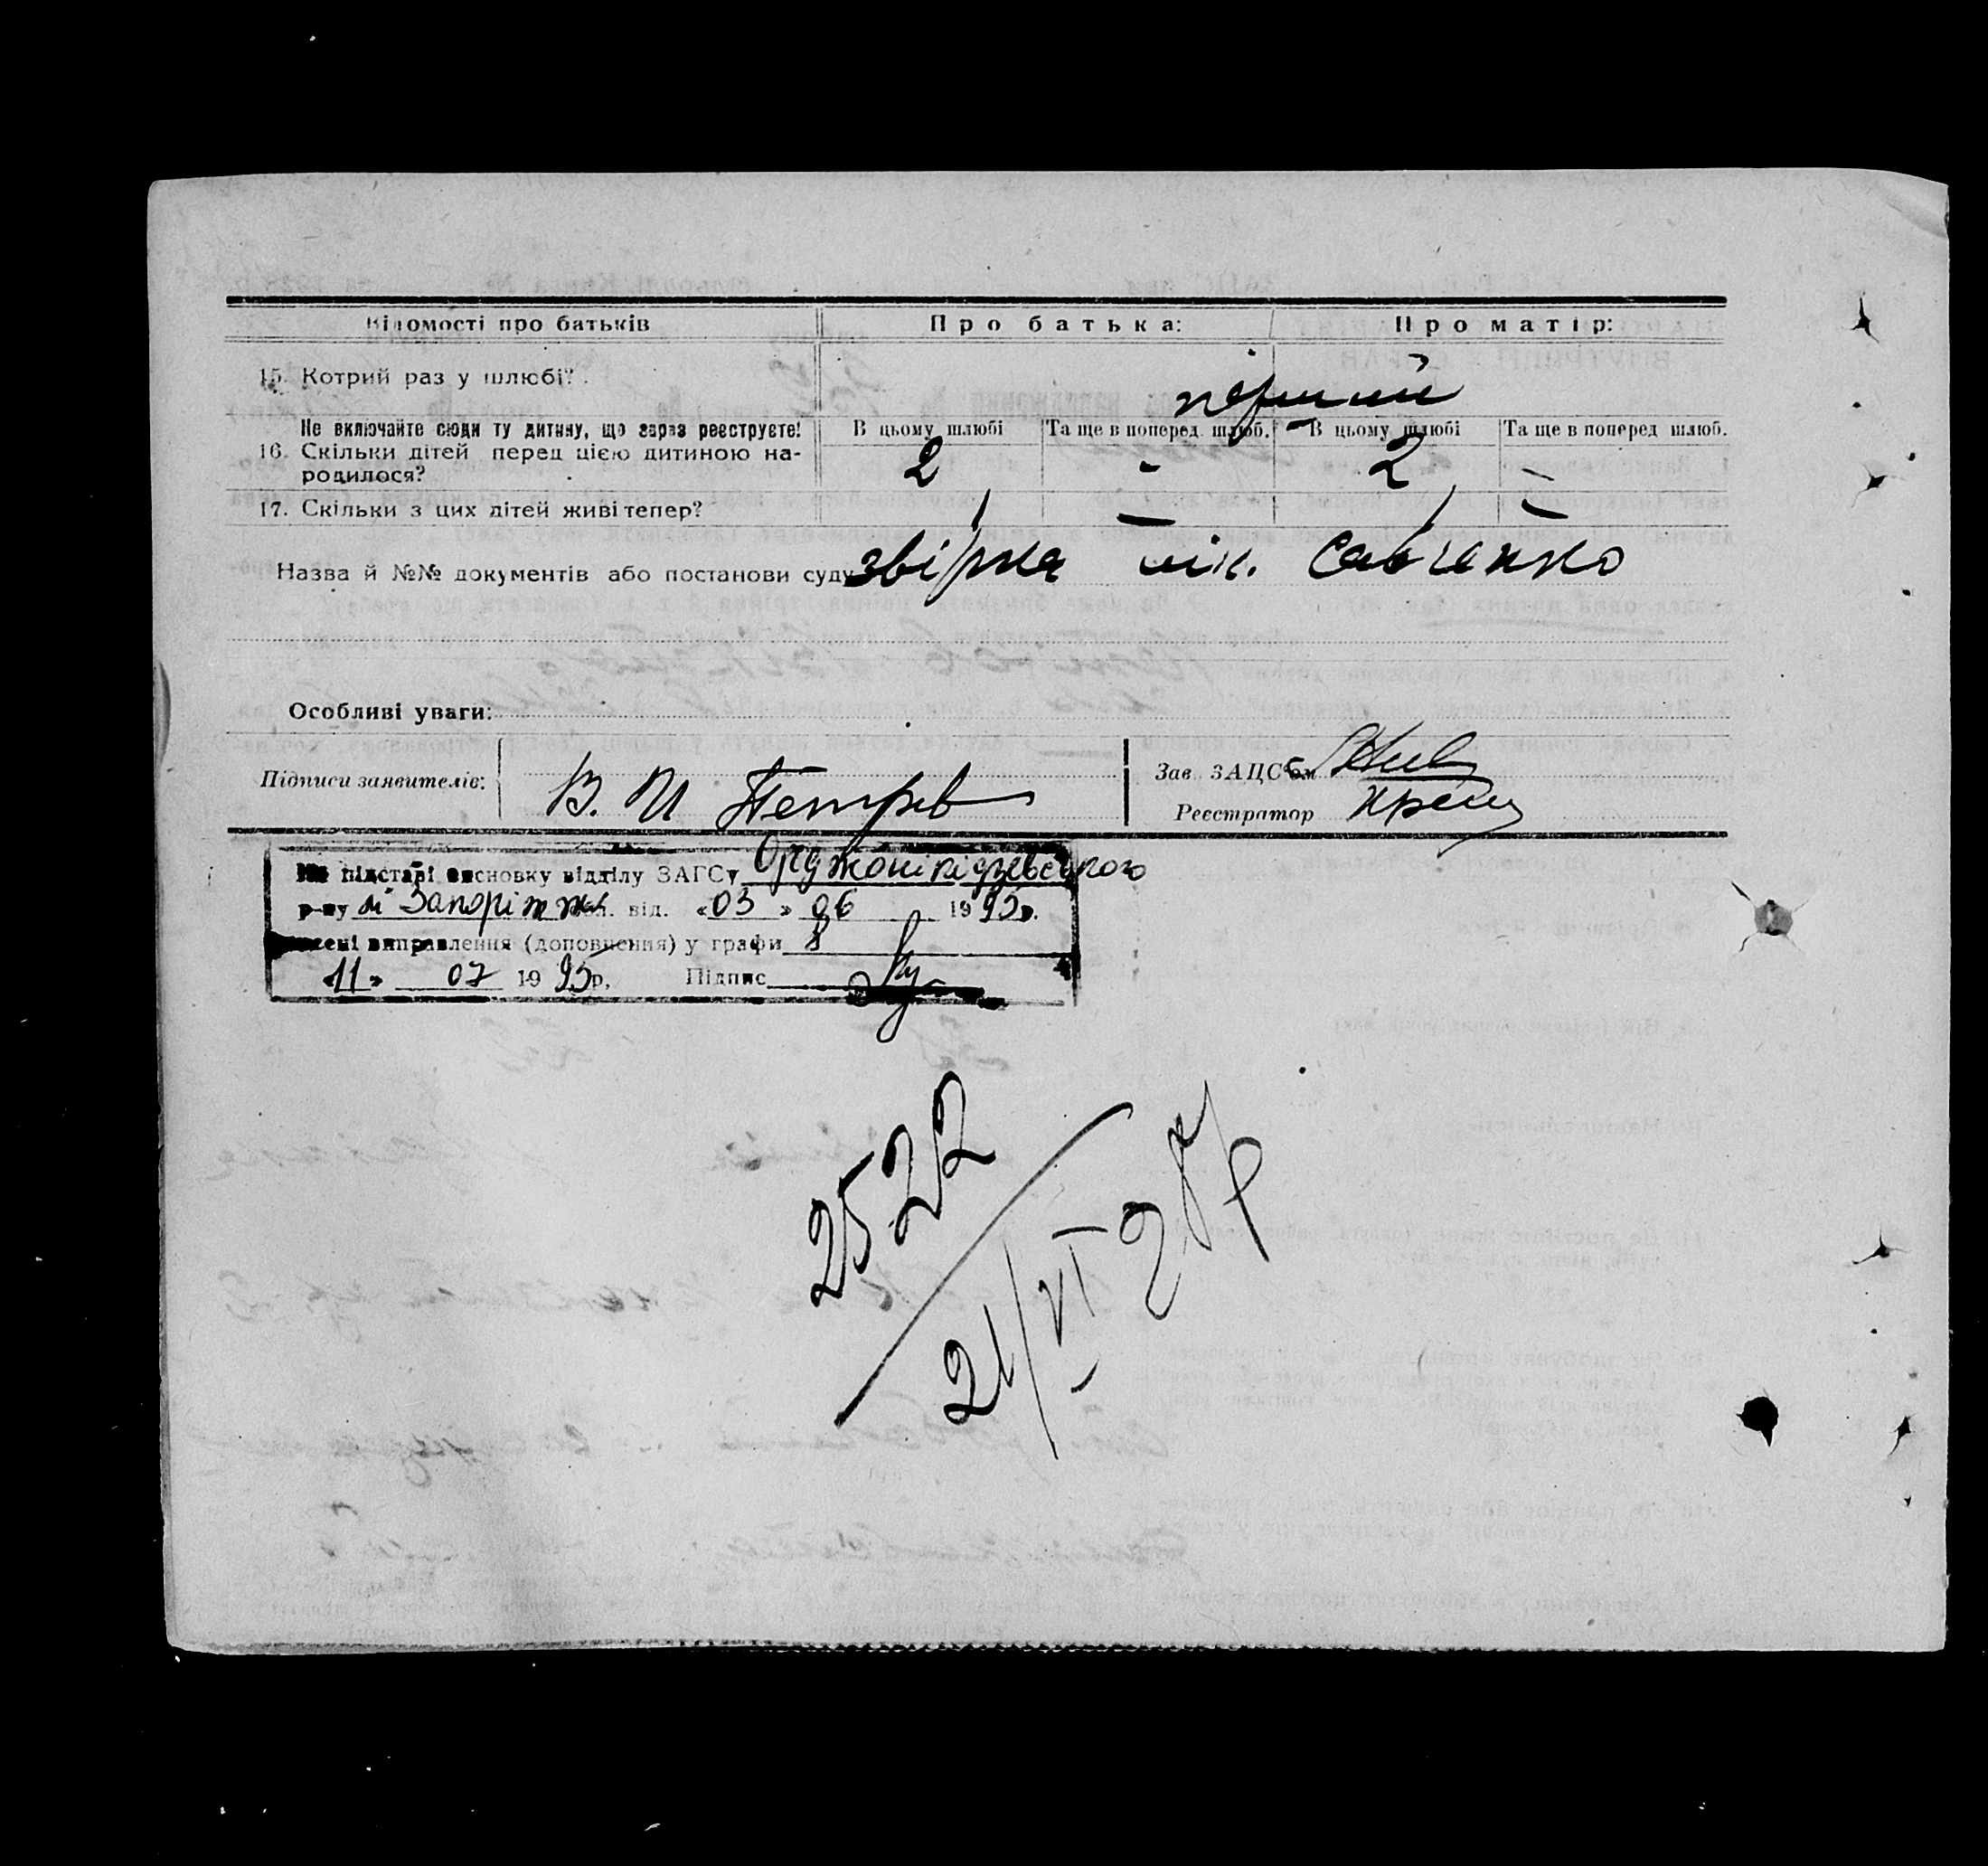 Відомості про батьків Про батька: Про матір:
15. Котрий раз у шлюбі? перший
Не включайте сюди ту дитину, що зараз реєструєте! В цьому шлюбі Та ще в поперед. шлюб. В цьому шлюбі Та ще в поперед шлюб.
16. Скільки дітей перед цією дитиною на-
родилося? 2 - 2 -
17. Скільки з цих дітей живі тепер? 1 - 1 -
Назва й №№ документів або постанови суду звірка лік. Савченко
Особливі уваги:
Підписи заявителів: В. И Петров
Зав. ЗАЦС'ом
Реєстратор
На підставі висновку відділу ЗАГСу Орджонікідзевського
р-ну м Запоріжжя від. «03» 06 1995р.
внесені виправлення (доповнення) у графи 8
«11» 07 1995р, Підпис
2522
21/VI 28 р